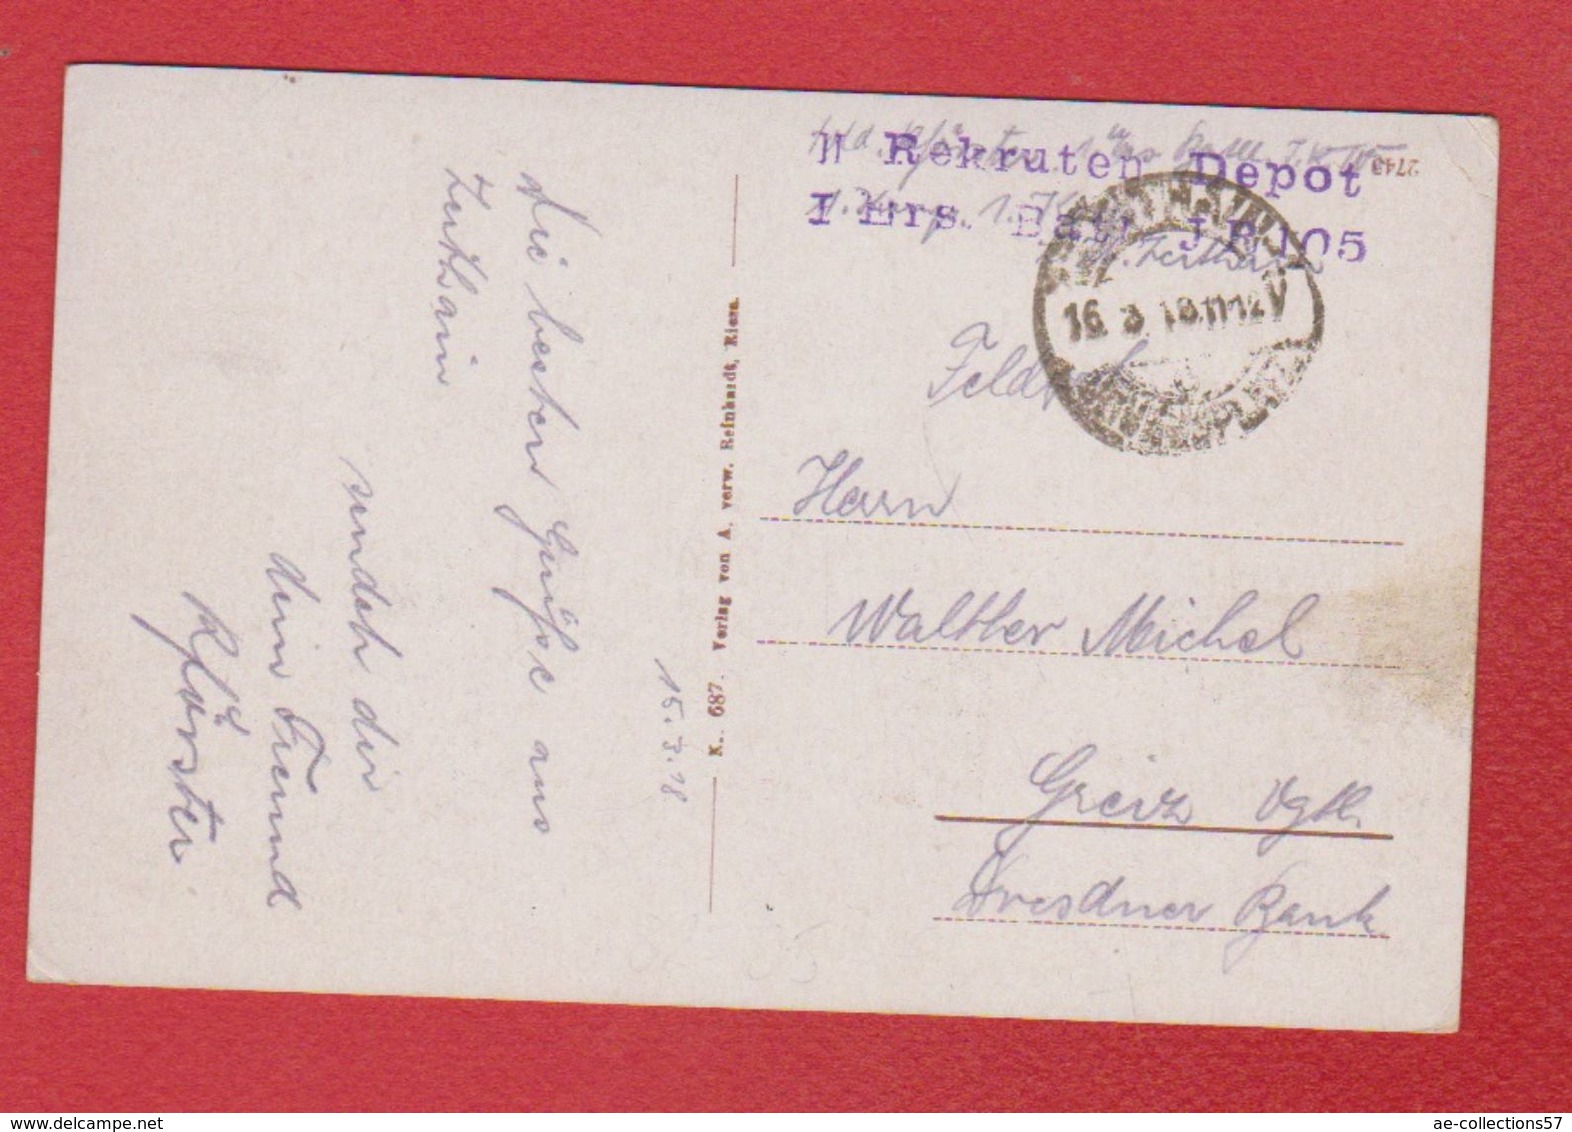 II Rekruten Depot
I Ers. Batl. J.R. 105
2743
Zeithain
ZEITHAIN
16. 3. 18. 11-12 V
Feldp
Herrn
Walther Michel
Greiz Vgtl.
Dresdner Bank
Die besten Grüße aus
Zeithain
sendet dir
dein Freund
R. Förster.
15.3.18
K.. 687. Verlag von A. verw. Reinhardt, Riesa.
ae-collections57